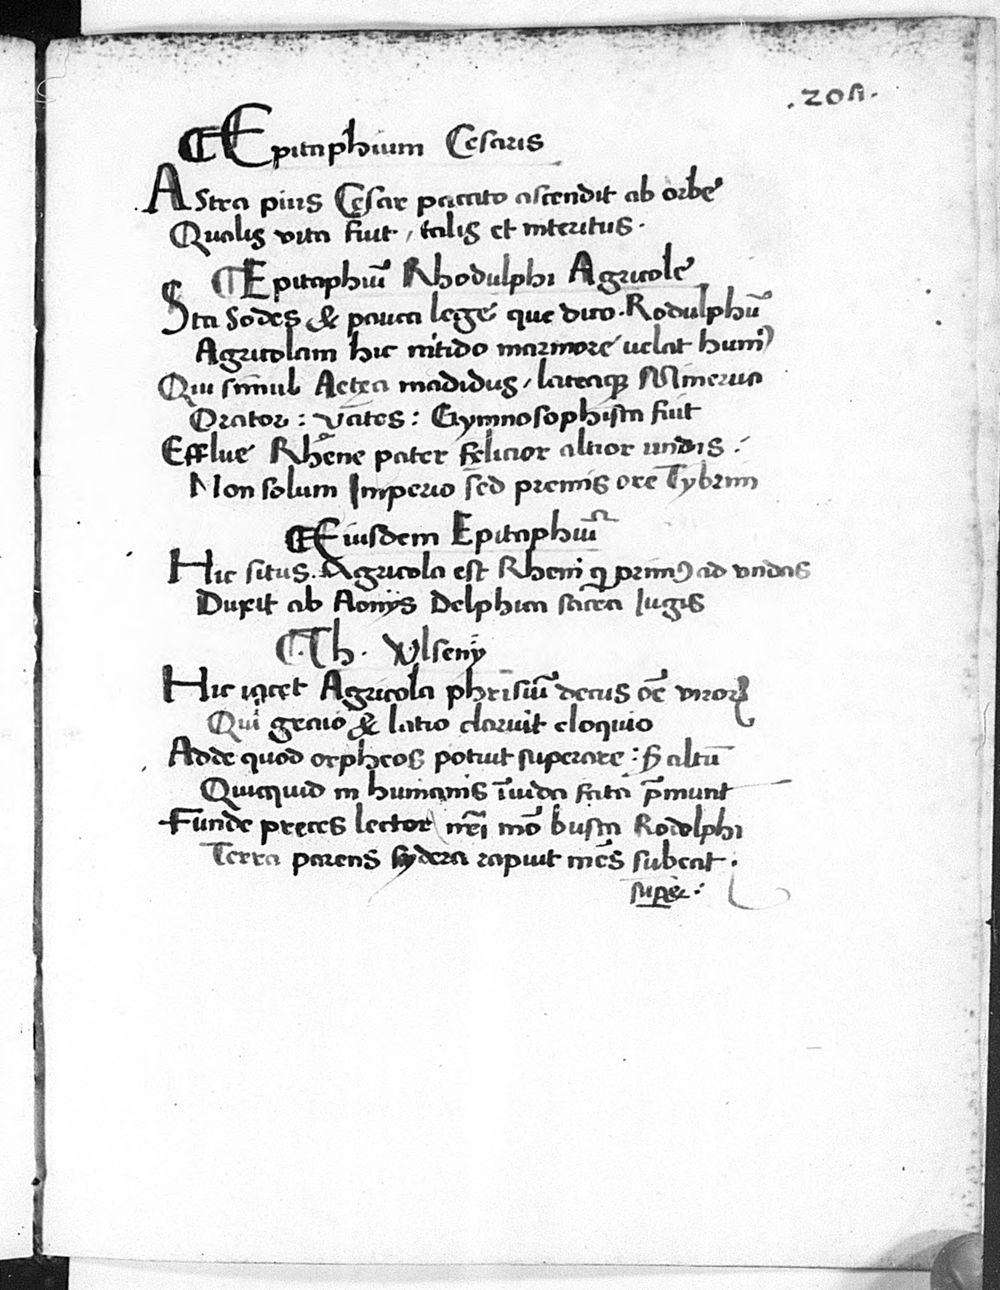 .20A.
Epitaphium Cesaris
Astra pius Cęsar pacato ascendit ab orbe
Qualis vita fuit, talis et interitus.
Epitaphiū Rhodulphi Agricole
Sta sodes & pauca lege que dico. Rodulphū
Agricolam hic nitido marmore uelat humꝰ
Qui simul Actea madidus, lateaqꝫ Minerua
Orator: vates: Gymnosophista fuit
Efflue Rhene pater felicior altior undis:
Non solum Imperio sed premis ore Tybrim
Eiusdem Epitaphiū
Hic situs Agricola est Rheni q̄ primꝰ ad vndas
Duxit ab Aonijs Delphica sacra Iugis
Th. Vlsenij
Hic iacet Agricola phrisiū decus oē virorꝫ
Qui graio & latio claruit eloquio
Adde quod orpheos potuit superare: s̄ altū
Quicquid in humanis īuida fata p̄munt
Funde preces lector mēi mō busta Rodolphi
Terra parens sydera rapuit mēs subeat.